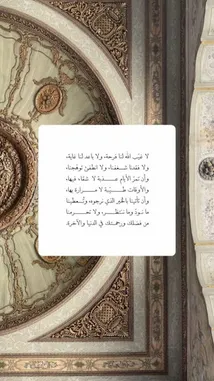 لا غيّب الله لنا فرحة، ولا باعد لنا غاية،
ولا فقدنا شغفنا، ولا انطفئ توهجنا،
وأن تمرّ الأيام عذبة لا شقاء فيها،
والأوقات طيّبة لا مرارة بها،
وأن تأتينا بالخير الذي نرجوه، وتُعطينا
ما نودّ وما ننتظر، ولا تحرمنا
من فضلك ورحمتك في الدنيا والآخرة.